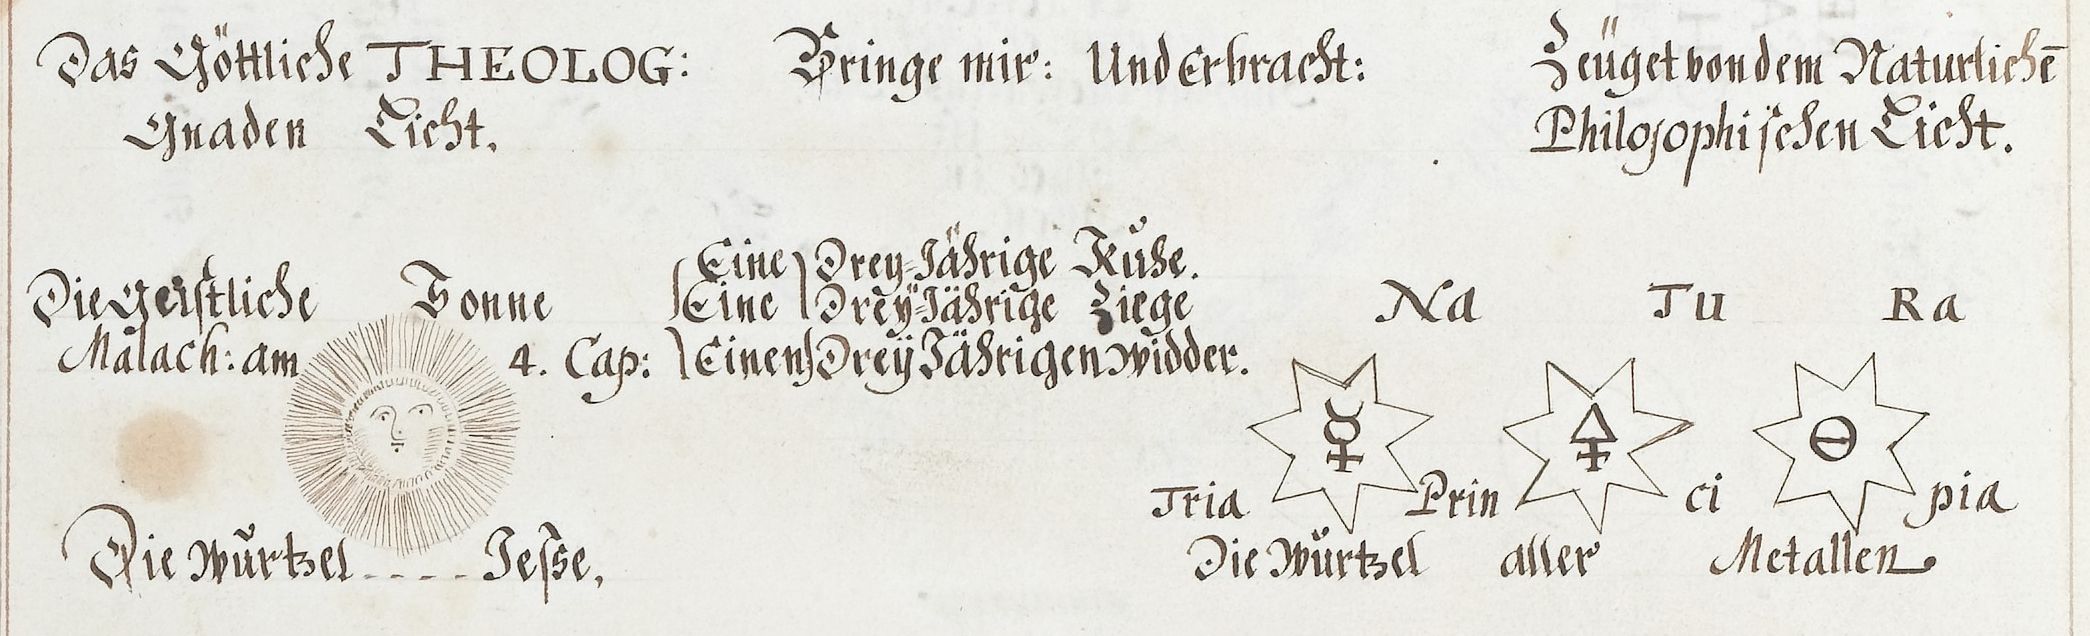 Das Göttliche THEOLOG: Bringe mir: Und Erbracht: Zeüget von dem Naturlichē
Gnaden Licht. Philosophischen Licht.
Eine Drey-Jährige Kůhe.
Die Geistliche Sonne Eine Dreÿ-Jährige Ziege Na Tu Ra
Malach: am 4. Cap: Einen Dreÿ Jährigen Widder.
☿ 🜍 🜔
Tria Prin ci pia
Die Wůrtzel .... Jesse, Die Würtzel aller Metallen